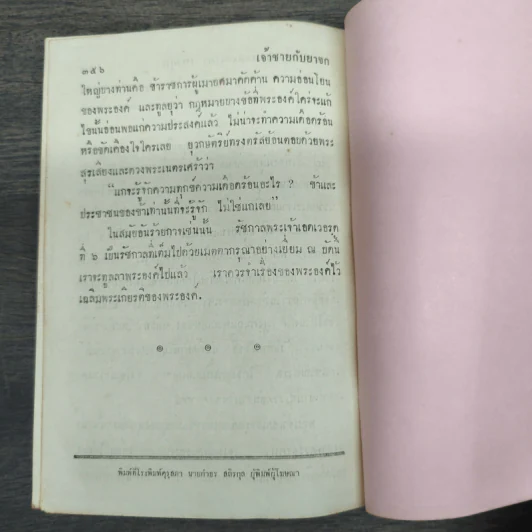 เจ้าชายกับยาจก
๓๕๖
ใหญ่ยางท่านคือ ข้าราชการผู้เมายศมาคัดค้าน ความอ่อนโยน
ของพระองค์ และทูลยุว่า กฎหมายยางข้อที่พระองค์ใคร่จะแก้
ไขนั้นอ่อนพอแก่ความประสงค์แล้ว ไม่น่าจะทำความเดือดร้อน
หรือขัดเคืองใจใครเลย ยุวกษัตริย์ทรงตรัสย้อนตอบด้วยพระ
สุรเสียงและดวงพระเนตรเศร้าว่า
"แกจะรู้จักความทุกข์ความเดือดร้อนอะไร ? ข้าและ
ประชาชนของข้าเท่านั้นที่จะรู้จัก ไม่ใช่แกเลย"
ในสมัยอันร้ายกาจเช่นนั้น รัชกาลพระเจ้าเอดเวอรด
ที่ ๖ เป็นรัชกาลที่เต็มไปด้วยเมตตากรุณาอย่างเยี่ยม ณ บัดนี้
เราจะทูลลาพระองค์ไปแล้ว เราควรจำเรื่องของพระองค์ไว้
เฉลิมพระเกียรติของพระองค์.
พิมพ์ที่โรงพิมพ์คุรุสภา นายกำธร สถิรกุล ผู้พิมพ์ผู้โฆษณา